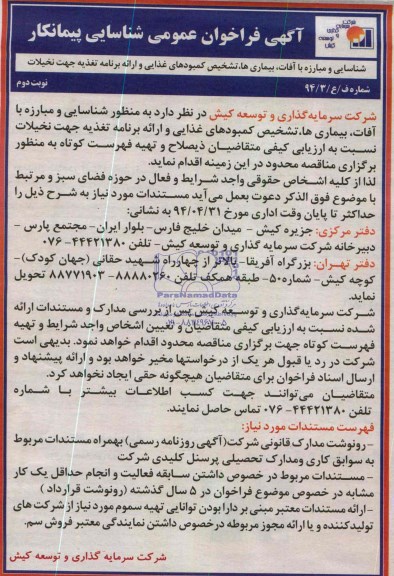 آگهی فراخوان عمومی شناسایی پیمانکار
شناسایی و مبارزه با آفات، بیماری ها،تشخیص کمبودهای غذایی و ارائه برنامه تغذیه جهت نخیلات
شماره ف/ع/۹۴/۳
نوبت دوم
شرکت سرمایه‌گذاری و توسعه کیش در نظر دارد به منظور شناسایی و مبارزه با
آفات، بیماری ها،تشخیص کمبودهای غذایی و ارائه برنامه تغذیه جهت نخیلات
نسبت به ارزیابی کیفی متقاضیان ذیصلاح و تهیه فهرست کوتاه به منظور
برگزاری مناقصه محدود در این زمینه اقدام نماید.
لذا از کلیه اشخاص حقوقی واجد شرایط و فعال در حوزه فضای سبز و مرتبط
با موضوع فوق الذکر دعوت بعمل می‌آید مستندات مورد نیاز به شرح ذیل را
حداکثر تا پایان وقت اداری مورخ ۹۴/۰۴/۳۱ به نشانی:
دفتر مرکزی: جزیره کیش - میدان خلیج فارس- بلوار ایران- مجتمع پارس -
دبیرخانه شرکت سرمایه گذاری و توسعه کیش- تلفن ۴۴۴۲۱۳۸۰-۰۷۶
دفتر تهران: بزرگراه آفریقا- بالاتر از چهارراه شهید حقانی (جهان کودک)-
کوچه کیش- شماره ۵۰- طبقه همکف تلفن ۸۸۸۸۰۳۶۰ - ۸۸۷۷۱۹۰۳ تحویل
نماید.
شرکت سرمایه‌گذاری و توسعه کیش پس از بررسی مدارک و مستندات ارائه
شده نسبت به ارزیابی کیفی متقاضیان و تعیین اشخاص واجد شرایط و تهیه
فهرست کوتاه جهت برگزاری مناقصه محدود اقدام خواهد نمود. بدیهی است
شرکت در رد یا قبول هر یک از درخواستها مخیر خواهد بود و ارائه پیشنهاد و
ارسال اسناد فراخوان برای متقاضیان هیچگونه حقی ایجاد نخواهد کرد.
متقاضیان می‌توانند جهت کسب اطلاعات بیشتر با شماره
تلفن ۴۴۴۲۱۳۸۰-۰۷۶ تماس حاصل نمایند.
فهرست مستندات مورد نیاز:
-رونوشت مدارک قانونی شرکت(آگهی روزنامه رسمی) بهمراه مستندات مربوط
به سوابق کاری ومدارک تحصیلی پرسنل کلیدی شرکت
- مستندات مربوط در خصوص داشتن سابقه فعالیت و انجام حداقل یک کار
مشابه در خصوص موضوع فراخوان در ۵ سال گذشته (رونوشت قرارداد )
-ارائه مستندات معتبر مبنی بر دارا بودن توانایی تهیه سموم مورد نیاز از شرکت های
تولیدکننده و یا ارائه مجوز مربوطه درخصوص داشتن نمایندگی معتبر فروش سم.
شرکت سرمایه گذاری و توسعه کیش
ParsNamadData